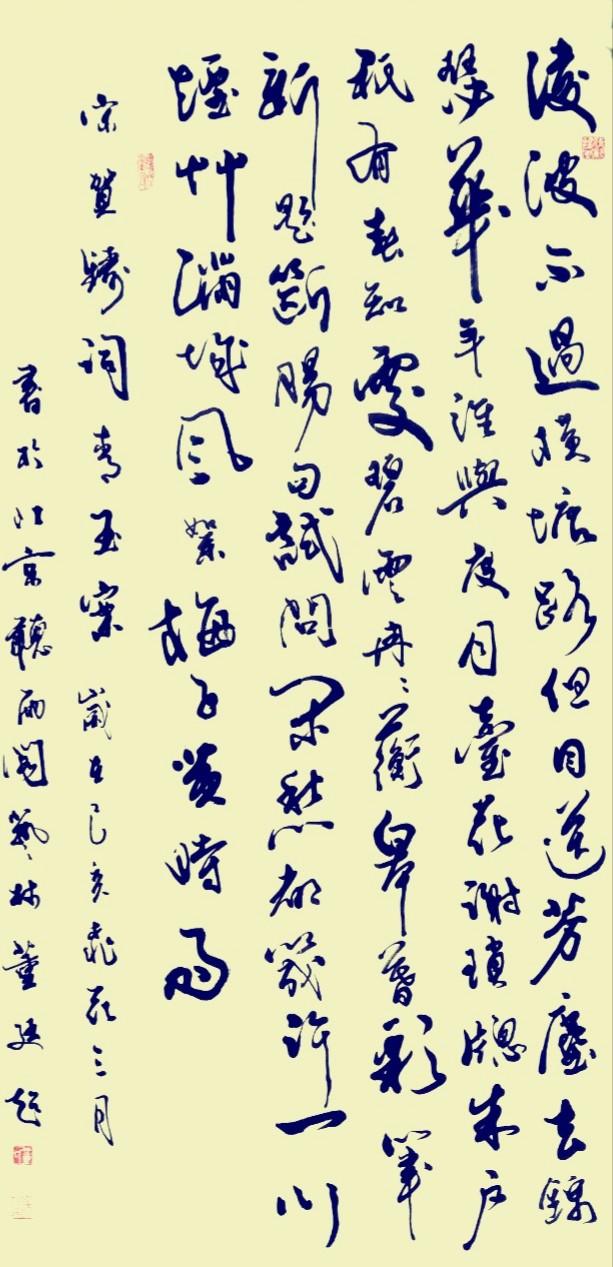 淩波不過橫塘路但目送芳塵去錦
瑟華年誰與度月臺花謝瑣牕朱戶
祇有春知處碧雲冉〻蘅皋暮彩筆
新題斷腸句試問閑愁都幾許一川
煙艸滿城風絮梅子黃時雨
宋賀鑄詞青玉案 歲在己亥花三月
書於北京聽雨閣藝林董